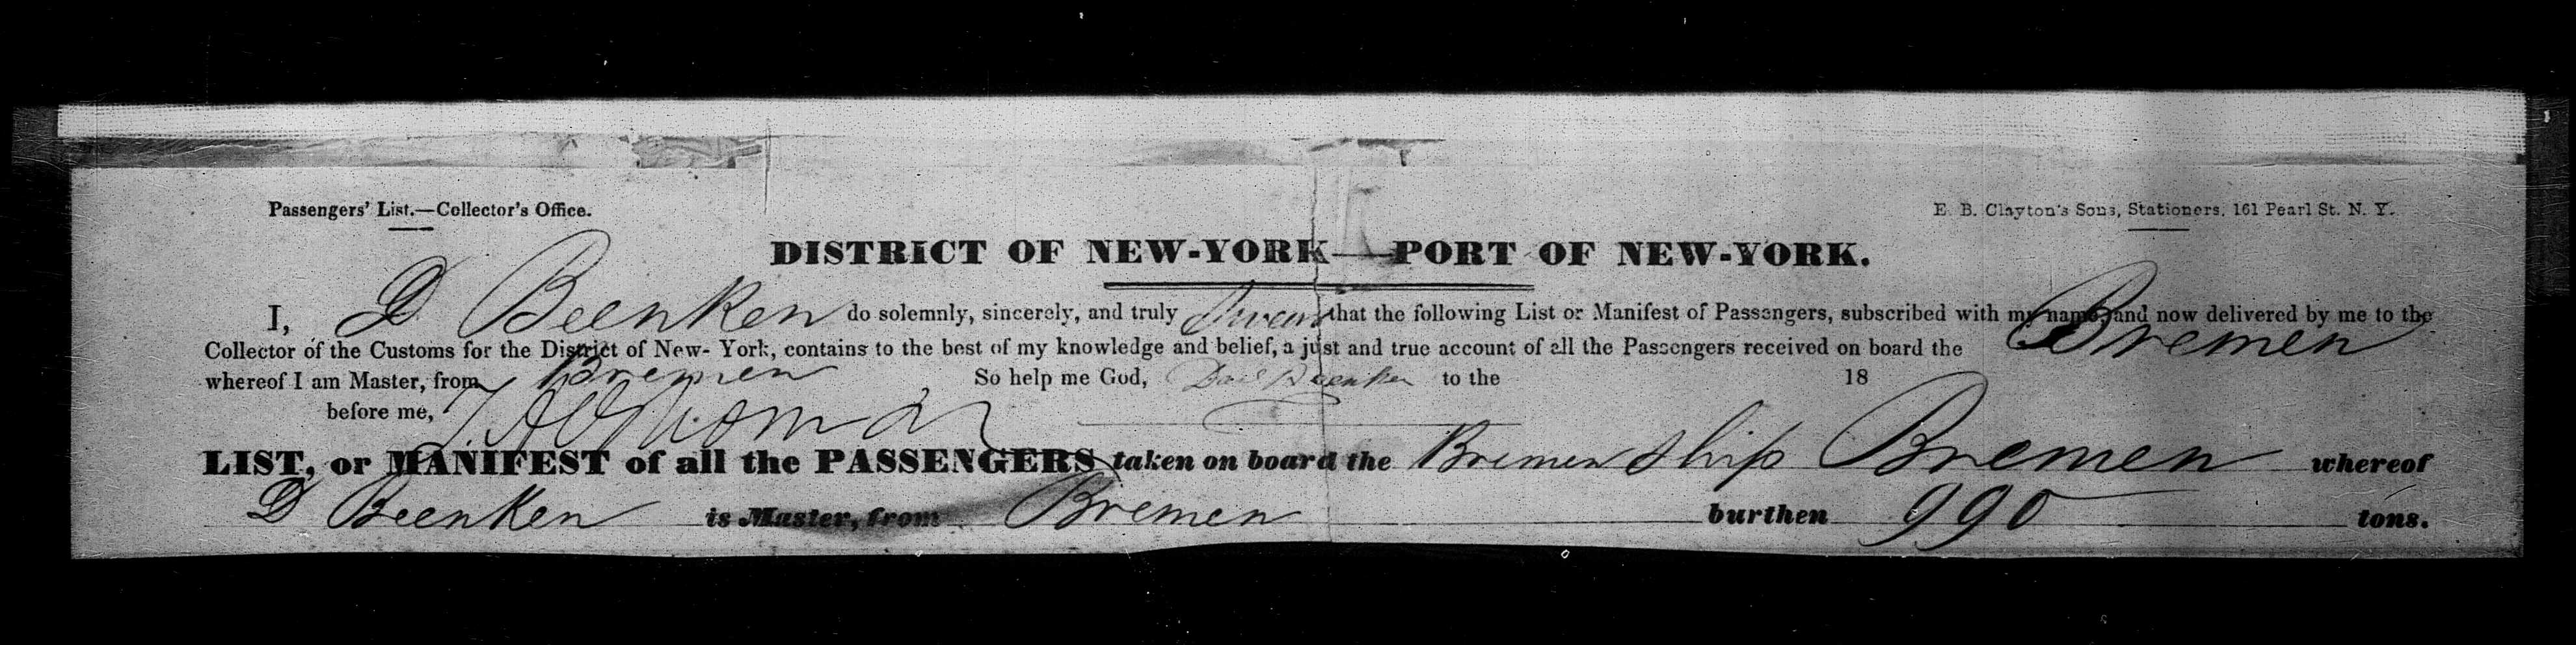 Passengers' List.—Collector's Office.
E. B. Clayton's Sons, Stationers, 161 Pearl St. N. Y.
DISTRICT OF NEW-YORK—PORT OF NEW-YORK.
I, D Beenken do solemnly, sincerely, and truly Swear that the following List or Manifest of Passengers, subscribed with my name, and now delivered by me to the
Collector of the Customs for the District of New- York, contains to the best of my knowledge and belief, a just and true account of all the Passengers received on board the Bremen
whereof I am Master, from Bremen So help me God, Beenken to the 18
before me,
LIST, or MANIFEST of all the PASSENGERS taken on board the Bremen Ship Bremen whereof
D Beenken is Master, from Bremen burthen 990 tons.